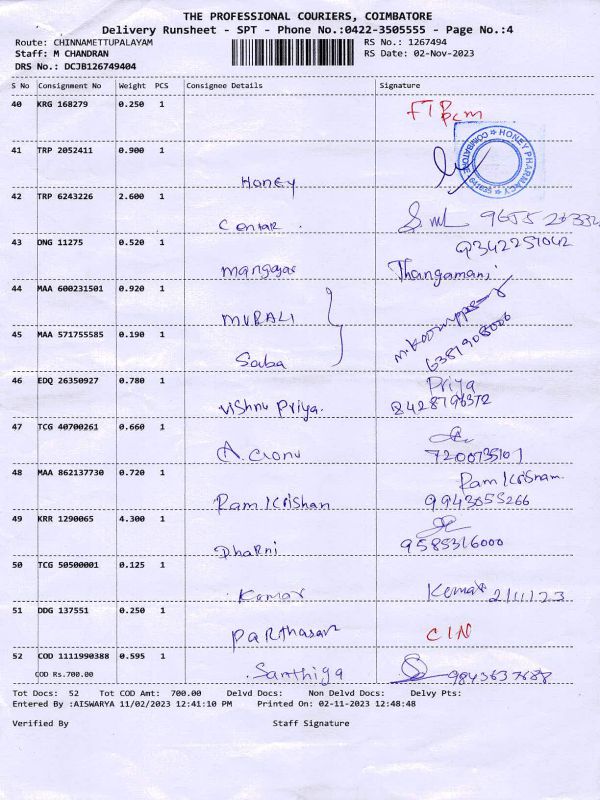 THE PROFESSIONAL COURIERS, COIMBATORE
Delivery Runsheet - SPT - Phone No.:0422-3505555 - Page No.:4
Route: CHINNAMETTUPALAYAM
RS No.: 1267494
Staff: M CHANDRAN
RS Date: 02-Nov-2023
DRS No.: DCJB126749404
S No Consignment No Weight PCS Consignee Details Signature
40 KRG 168279 0.250 1
41 TRP 2052411 0.900 1 Honey
HONEY PHARMACY COIMBATORE
42 TRP 6243226 2.600 1 Centar.
43 ONG 11275 0.520 1 Thangamani
9342251042
44 MAA 600231501 0.920 1 MURALI
45 MAA 571755585 0.190 1 Saba
6381908006
46 EDQ 26350927 0.780 1 Vishnu Priya. Priya
8428796372
47 TCG 40700261 0.660 1
7200735101
48 MAA 862137730 0.720 1 Ram Krishan
9943055266
49 KRR 1290065 4.300 1 Dharni 9585316000
50 TCG 50500001 0.125 1 Kumar Kumar 2/11/23
51 DDG 137551 0.250 1 Parthasar
52 COD 1111990388 0.595 1 Santhiya 9843637688
COD Rs.700.00
Tot Docs: 52 Tot COD Amt: 700.00 Delvd Docs: Non Delvd Docs: Delvy Pts:
Entered By :AISWARYA 11/02/2023 12:41:10 PM Printed On: 02-11-2023 12:48:48
Verified By Staff Signature